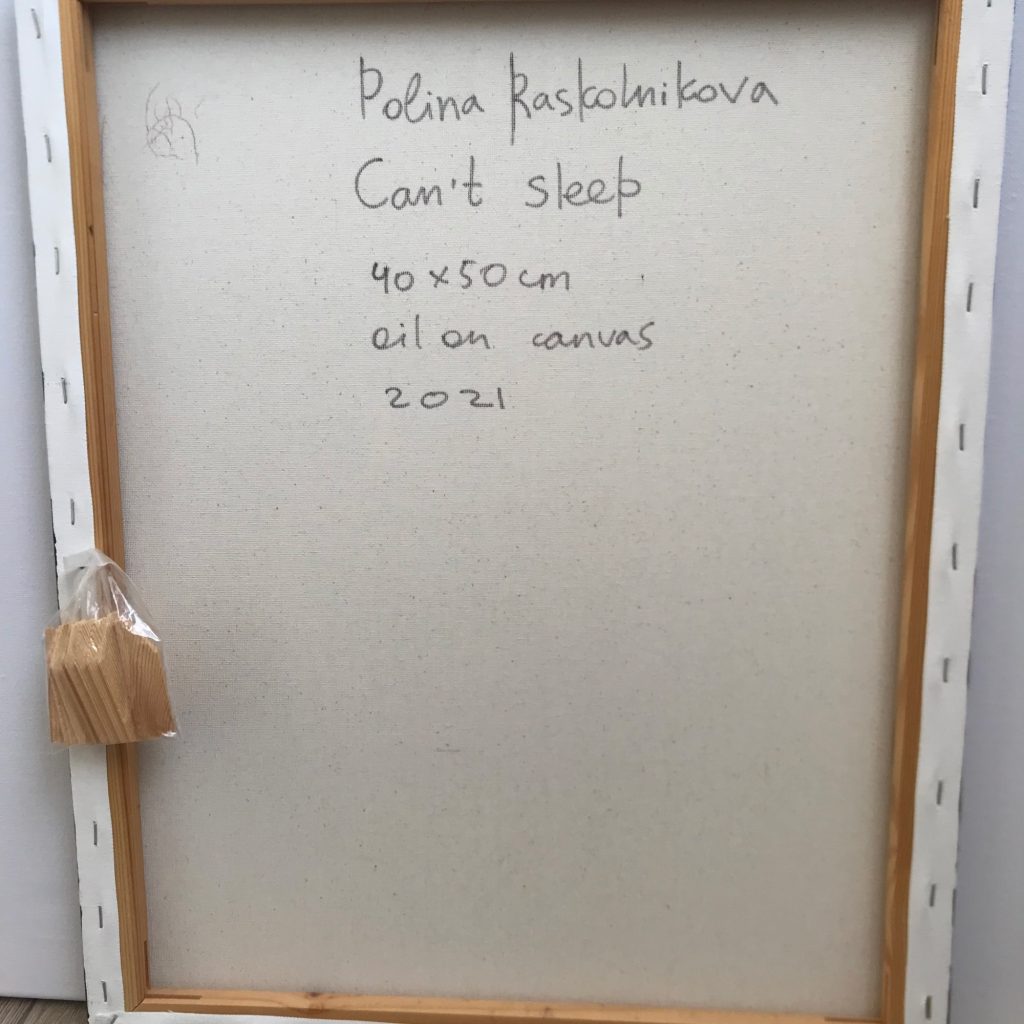 Polina Raskolnikova
Can't sleep
40 x 50 cm
oil on canvas
2021